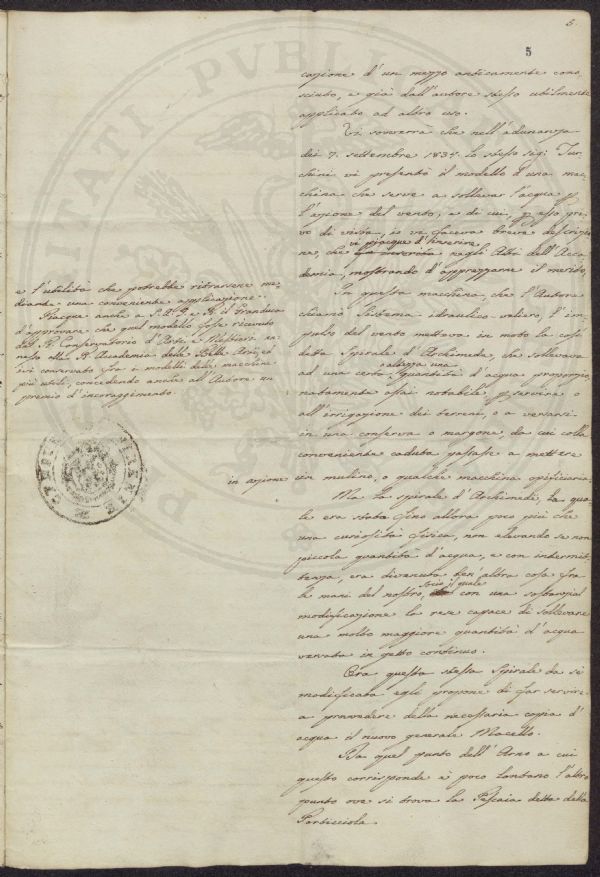 5.
5
cazione d'un mezzo anticamente cono
sciuto, e già dall'autore stesso utilmente
applicato ad altro uso.
Vi sovverrà che nell'adunanza
dei 7. settembre 1834. lo stesso sig. Tur
chini vi presentò il modello d'una mac
china che serve a sollevar l'acqua p
l'azione del vento, e di cui, p esso pri
vo di vista, io vi faceva breve descrizio
vi piacque d'inserire
ne, che negli Atti dell'Acca
demia, mostrando d'apprezzarne il merito,
e l'utilità che potrebbe ritrarsene me
diante una conveniente applicazione.
Piacque anche a S. A. I. e R. il Granduca
d'approvare che quel modello fosse ricevuto
dal R. Conservatorio d'Arti e Mestieri an
nesso alla R. Accademia delle Belle Arti, ed
ivi conservato fra i modelli delle macchine
più utili, concedendo anche all'Autore un
premio d'incoraggimento.
In questa macchina, che l'Autore
chiamò Sistema idraulico-veliero, l'im
pulso del vento metteva in moto la così
detta Spirale d'Archimede, che sollevava
ad una certa altezza una quantità d'acqua proporzio
natamente assai notabile p servire o
all'irrigazione dei terreni, o a versarsi
in una conserva o margone da cui colla
conveniente caduta passasse a mettere
in azione un mulino, o qualche macchina opificiaria.
Ma la spirale d'Archimede, la qua
le era stata fino allora poco più che
una curiosità fisica, non elevando se non
piccola quantità d'acqua, e con intermit
tenza, era divenuta ben'altra cosa fra
le mani del nostro Socio, il quale con una sostanzial
modificazione la rese capace di sollevare
una molto maggiore quantità d'acqua
versata in getto continuo.
Ora questa stessa Spirale da sè
modificata egli propone di far servire
a provvedere della necessaria copia d'
acqua il nuovo generale Macello.
Da quel punto dell'Arno a cui
questo corrisponde è poco lontano l'altro
punto ove si trova la Pescaia detta della
Porticciola.